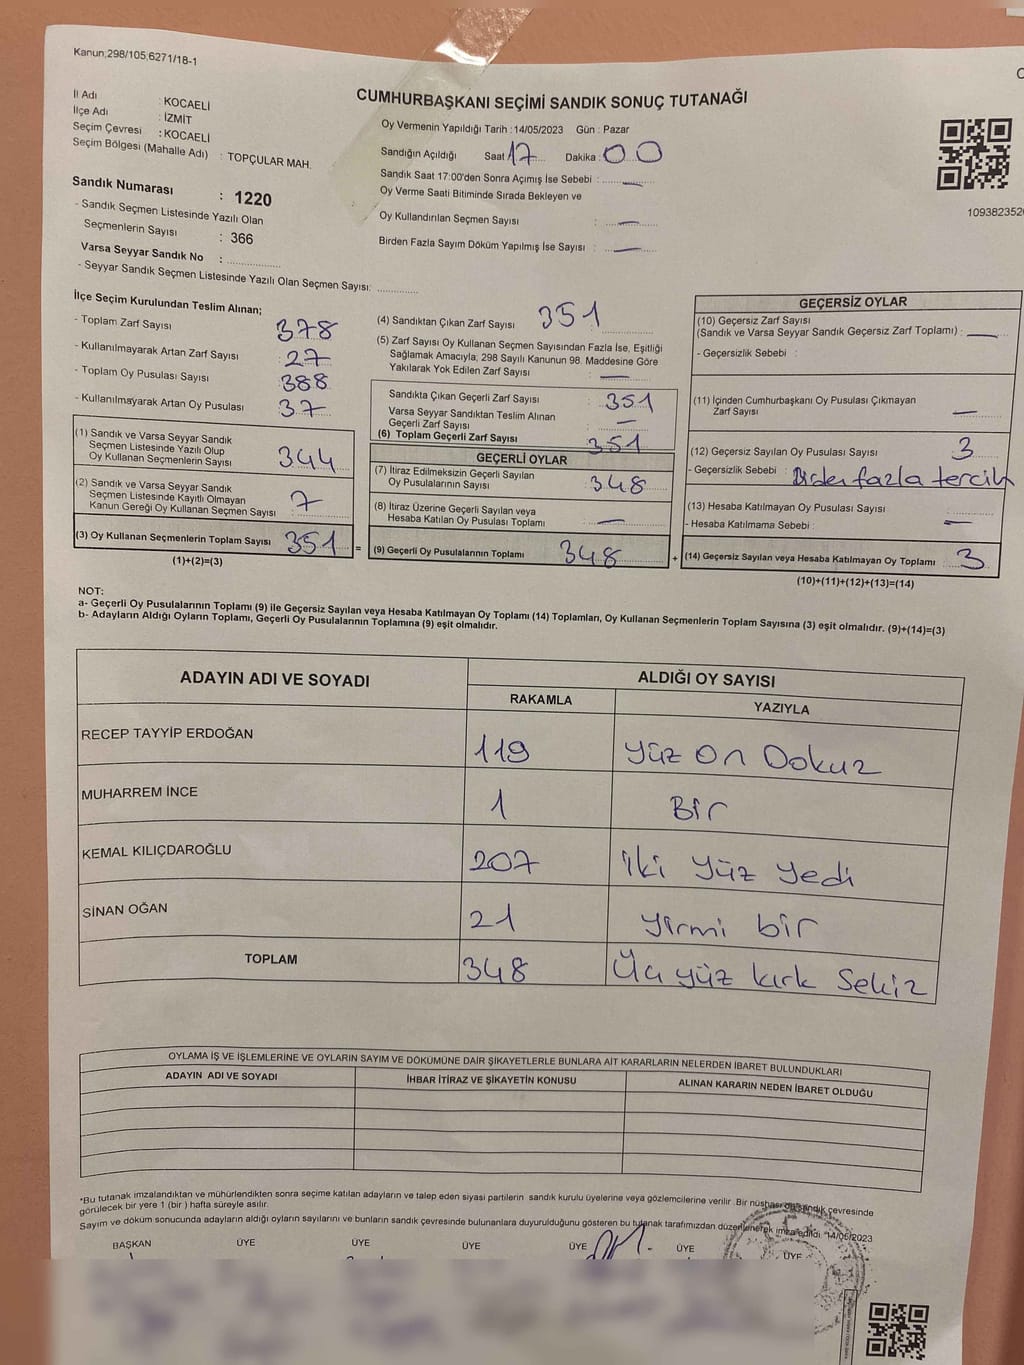 Kanun;298/105,6271/18-1
CUMHURBAŞKANI SEÇİMİ SANDIK SONUÇ TUTANAĞI
İl Adı : KOCAELİ
İlçe Adı : İZMİT
Seçim Çevresi : KOCAELİ
Seçim Bölgesi (Mahalle Adı) : TOPÇULAR MAH.
Sandık Numarası : 1220
- Sandık Seçmen Listesinde Yazılı Olan
Seçmenlerin Sayısı : 366
Varsa Seyyar Sandık No :
- Seyyar Sandık Seçmen Listesinde Yazılı Olan Seçmen Sayısı:
Oy Vermenin Yapıldığı Tarih : 14/05/2023 Gün : Pazar
Sandığın Açıldığı Saat 17 Dakika : 00
Sandık Saat 17:00'den Sonra Açımış İse Sebebi : —
Oy Verme Saati Bitiminde Sırada Bekleyen ve
Oy Kullandırılan Seçmen Sayısı : —
Birden Fazla Sayım Döküm Yapılmış İse Sayısı : —
1093823520
İlçe Seçim Kurulundan Teslim Alınan;
- Toplam Zarf Sayısı 378
- Kullanılmayarak Artan Zarf Sayısı 27
- Toplam Oy Pusulası Sayısı 388
- Kullanılmayarak Artan Oy Pusulası 37
(1) Sandık ve Varsa Seyyar Sandık
Seçmen Listesinde Yazılı Olup
Oy Kullanan Seçmenlerin Sayısı 344
(2) Sandık ve Varsa Seyyar Sandık
Seçmen Listesinde Kayıtlı Olmayan
Kanun Gereği Oy Kullanan Seçmen Sayısı 7
(3) Oy Kullanan Seçmenlerin Toplam Sayısı 351 =
(1)+(2)=(3)
(4) Sandıktan Çıkan Zarf Sayısı 351
(5) Zarf Sayısı Oy Kullanan Seçmen Sayısından Fazla İse, Eşitliği
Sağlamak Amacıyla; 298 Sayılı Kanunun 98. Maddesine Göre
Yakılarak Yok Edilen Zarf Sayısı : —
Sandıkta Çıkan Geçerli Zarf Sayısı : 351
Varsa Seyyar Sandıktan Teslim Alınan
Geçerli Zarf Sayısı : —
(6) Toplam Geçerli Zarf Sayısı 351
GEÇERLİ OYLAR
(7) İtiraz Edilmeksizin Geçerli Sayılan
Oy Pusulalarının Sayısı : 348
(8) İtiraz Üzerine Geçerli Sayılan veya
Hesaba Katılan Oy Pusulası Toplamı : —
(9) Geçerli Oy Pusulalarının Toplamı 348 +
GEÇERSİZ OYLAR
(10) Geçersiz Zarf Sayısı
(Sandık ve Varsa Seyyar Sandık Geçersiz Zarf Toplamı) : —
- Geçersizlik Sebebi :
(11) İçinden Cumhurbaşkanı Oy Pusulası Çıkmayan
Zarf Sayısı —
(12) Geçersiz Sayılan Oy Pusulası Sayısı 3
- Geçersizlik Sebebi : Birden fazla tercih
(13) Hesaba Katılmayan Oy Pusulası Sayısı
- Hesaba Katılmama Sebebi : —
(14) Geçersiz Sayılan veya Hesaba Katılmayan Oy Toplamı 3
(10)+(11)+(12)+(13)=(14)
NOT:
a- Geçerli Oy Pusulalarının Toplamı (9) ile Geçersiz Sayılan veya Hesaba Katılmayan Oy Toplamı (14) Toplamları, Oy Kullanan Seçmenlerin Toplam Sayısına (3) eşit olmalıdır. (9)+(14)=(3)
b- Adayların Aldığı Oyların Toplamı, Geçerli Oy Pusulalarının Toplamına (9) eşit olmalıdır.
ADAYIN ADI VE SOYADI ALDIĞI OY SAYISI
RAKAMLA YAZIYLA
RECEP TAYYİP ERDOĞAN 119 Yüz On Dokuz
MUHARREM İNCE 1 Bir
KEMAL KILIÇDAROĞLU 207 iki Yüz Yedi
SİNAN OĞAN 21 Yirmi bir
TOPLAM 348 Üç yüz kırk Sekiz
OYLAMA İŞ VE İŞLEMLERİNE VE OYLARIN SAYIM VE DÖKÜMÜNE DAİR ŞİKAYETLERLE BUNLARA AİT KARARLARIN NELERDEN İBARET BULUNDUKLARI
ADAYIN ADI VE SOYADI İHBAR İTİRAZ VE ŞİKAYETİN KONUSU ALINAN KARARIN NEDEN İBARET OLDUĞU
*Bu tutanak imzalandıktan ve mühürlendikten sonra seçime katılan adayların ve talep eden siyasi partilerin sandık kurulu üyelerine veya gözlemcilerine verilir. Bir nüshası da sandık çevresinde
görülecek bir yere 1 (bir) hafta süreyle asılır.
Sayım ve döküm sonucunda adayların aldığı oyların sayılarını ve bunların sandık çevresinde bulunanlara duyurulduğunu gösteren bu tutanak tarafımızdan düzenlenerek imza edildi. 14/05/2023
BAŞKAN ÜYE ÜYE ÜYE ÜYE ÜYE ÜYE